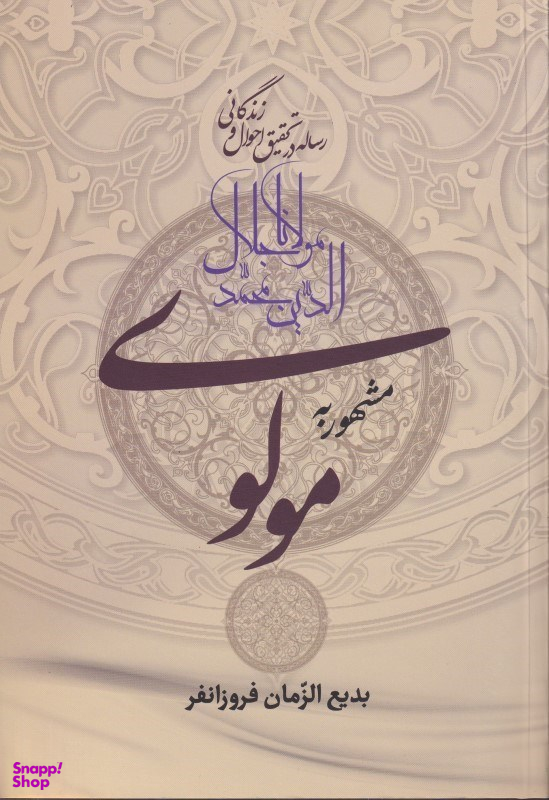 رساله در تحقیق احوال و زندگانی
مولانا جلال
الدّین محمّد
مشهور به
مولوی
بدیع الزّمان فروزانفر
Snapp!
Shop